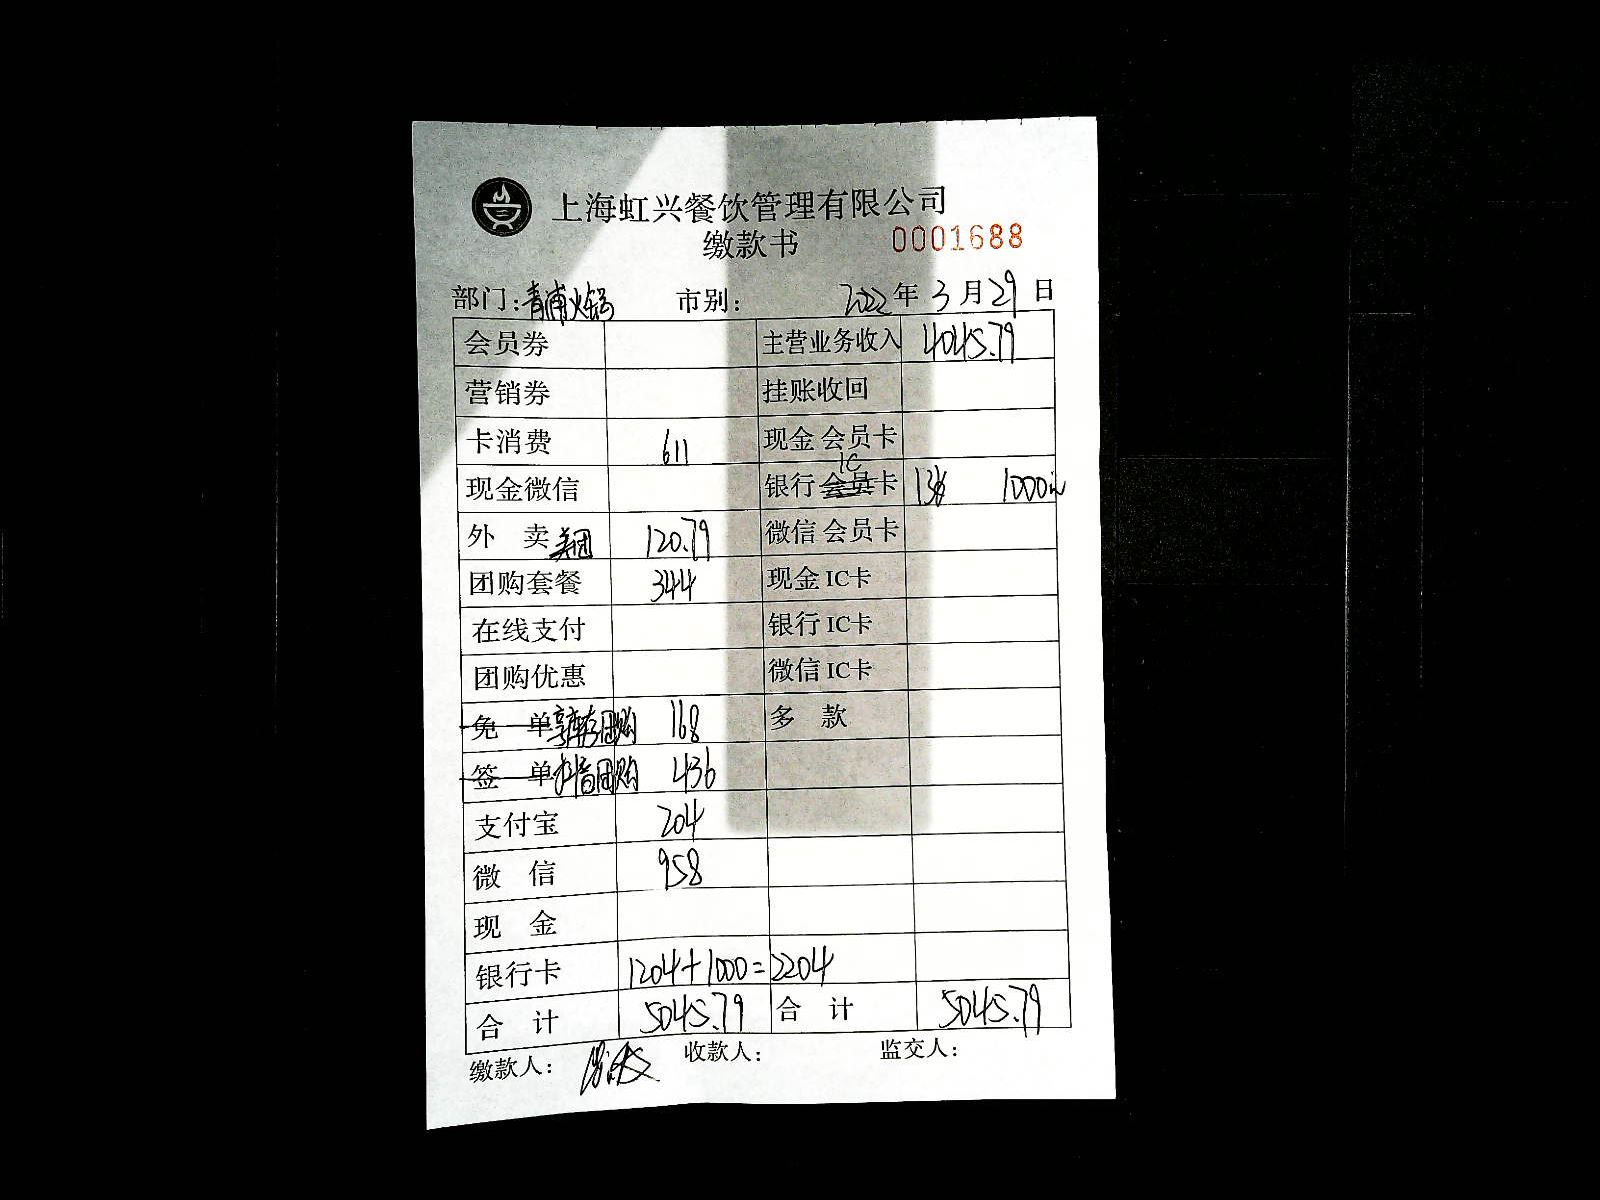 上海虹兴餐饮管理有限公司
缴款书 0001688
部门:青浦火锅 市别: 2022年3月29日
会员券 主营业务收入 4045.79
营销券 挂账收回
卡消费 611 现金 会员卡
现金微信 银行 会员 IC 卡 1000元
外 卖 美团 120.79 微信 会员卡
团购套餐 344 现金 IC卡
在线支付 银行 IC卡
团购优惠 微信 IC卡
免 单 团购 168 多 款
签 单 抖音团购 436
支付宝 204
微 信 958
现 金
银行卡 1204+1000=2204
合 计 5045.79 合 计 5045.79
缴款人: 收款人: 监交人: